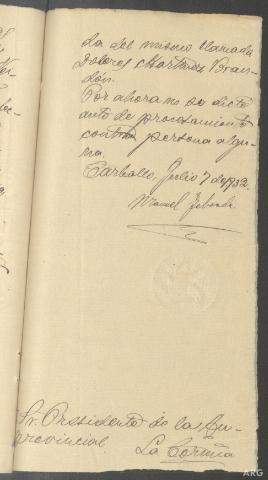 da del mismo llamada
Dolores Martinez Bran-
dón.
Por ahora no se dictó
auto de procesamiento
contra persona algu-
na.
Carballo, Julio 7 de 1932.
Manuel
Sr. Presidente de la Au-
provincial
La Coruña
ARG